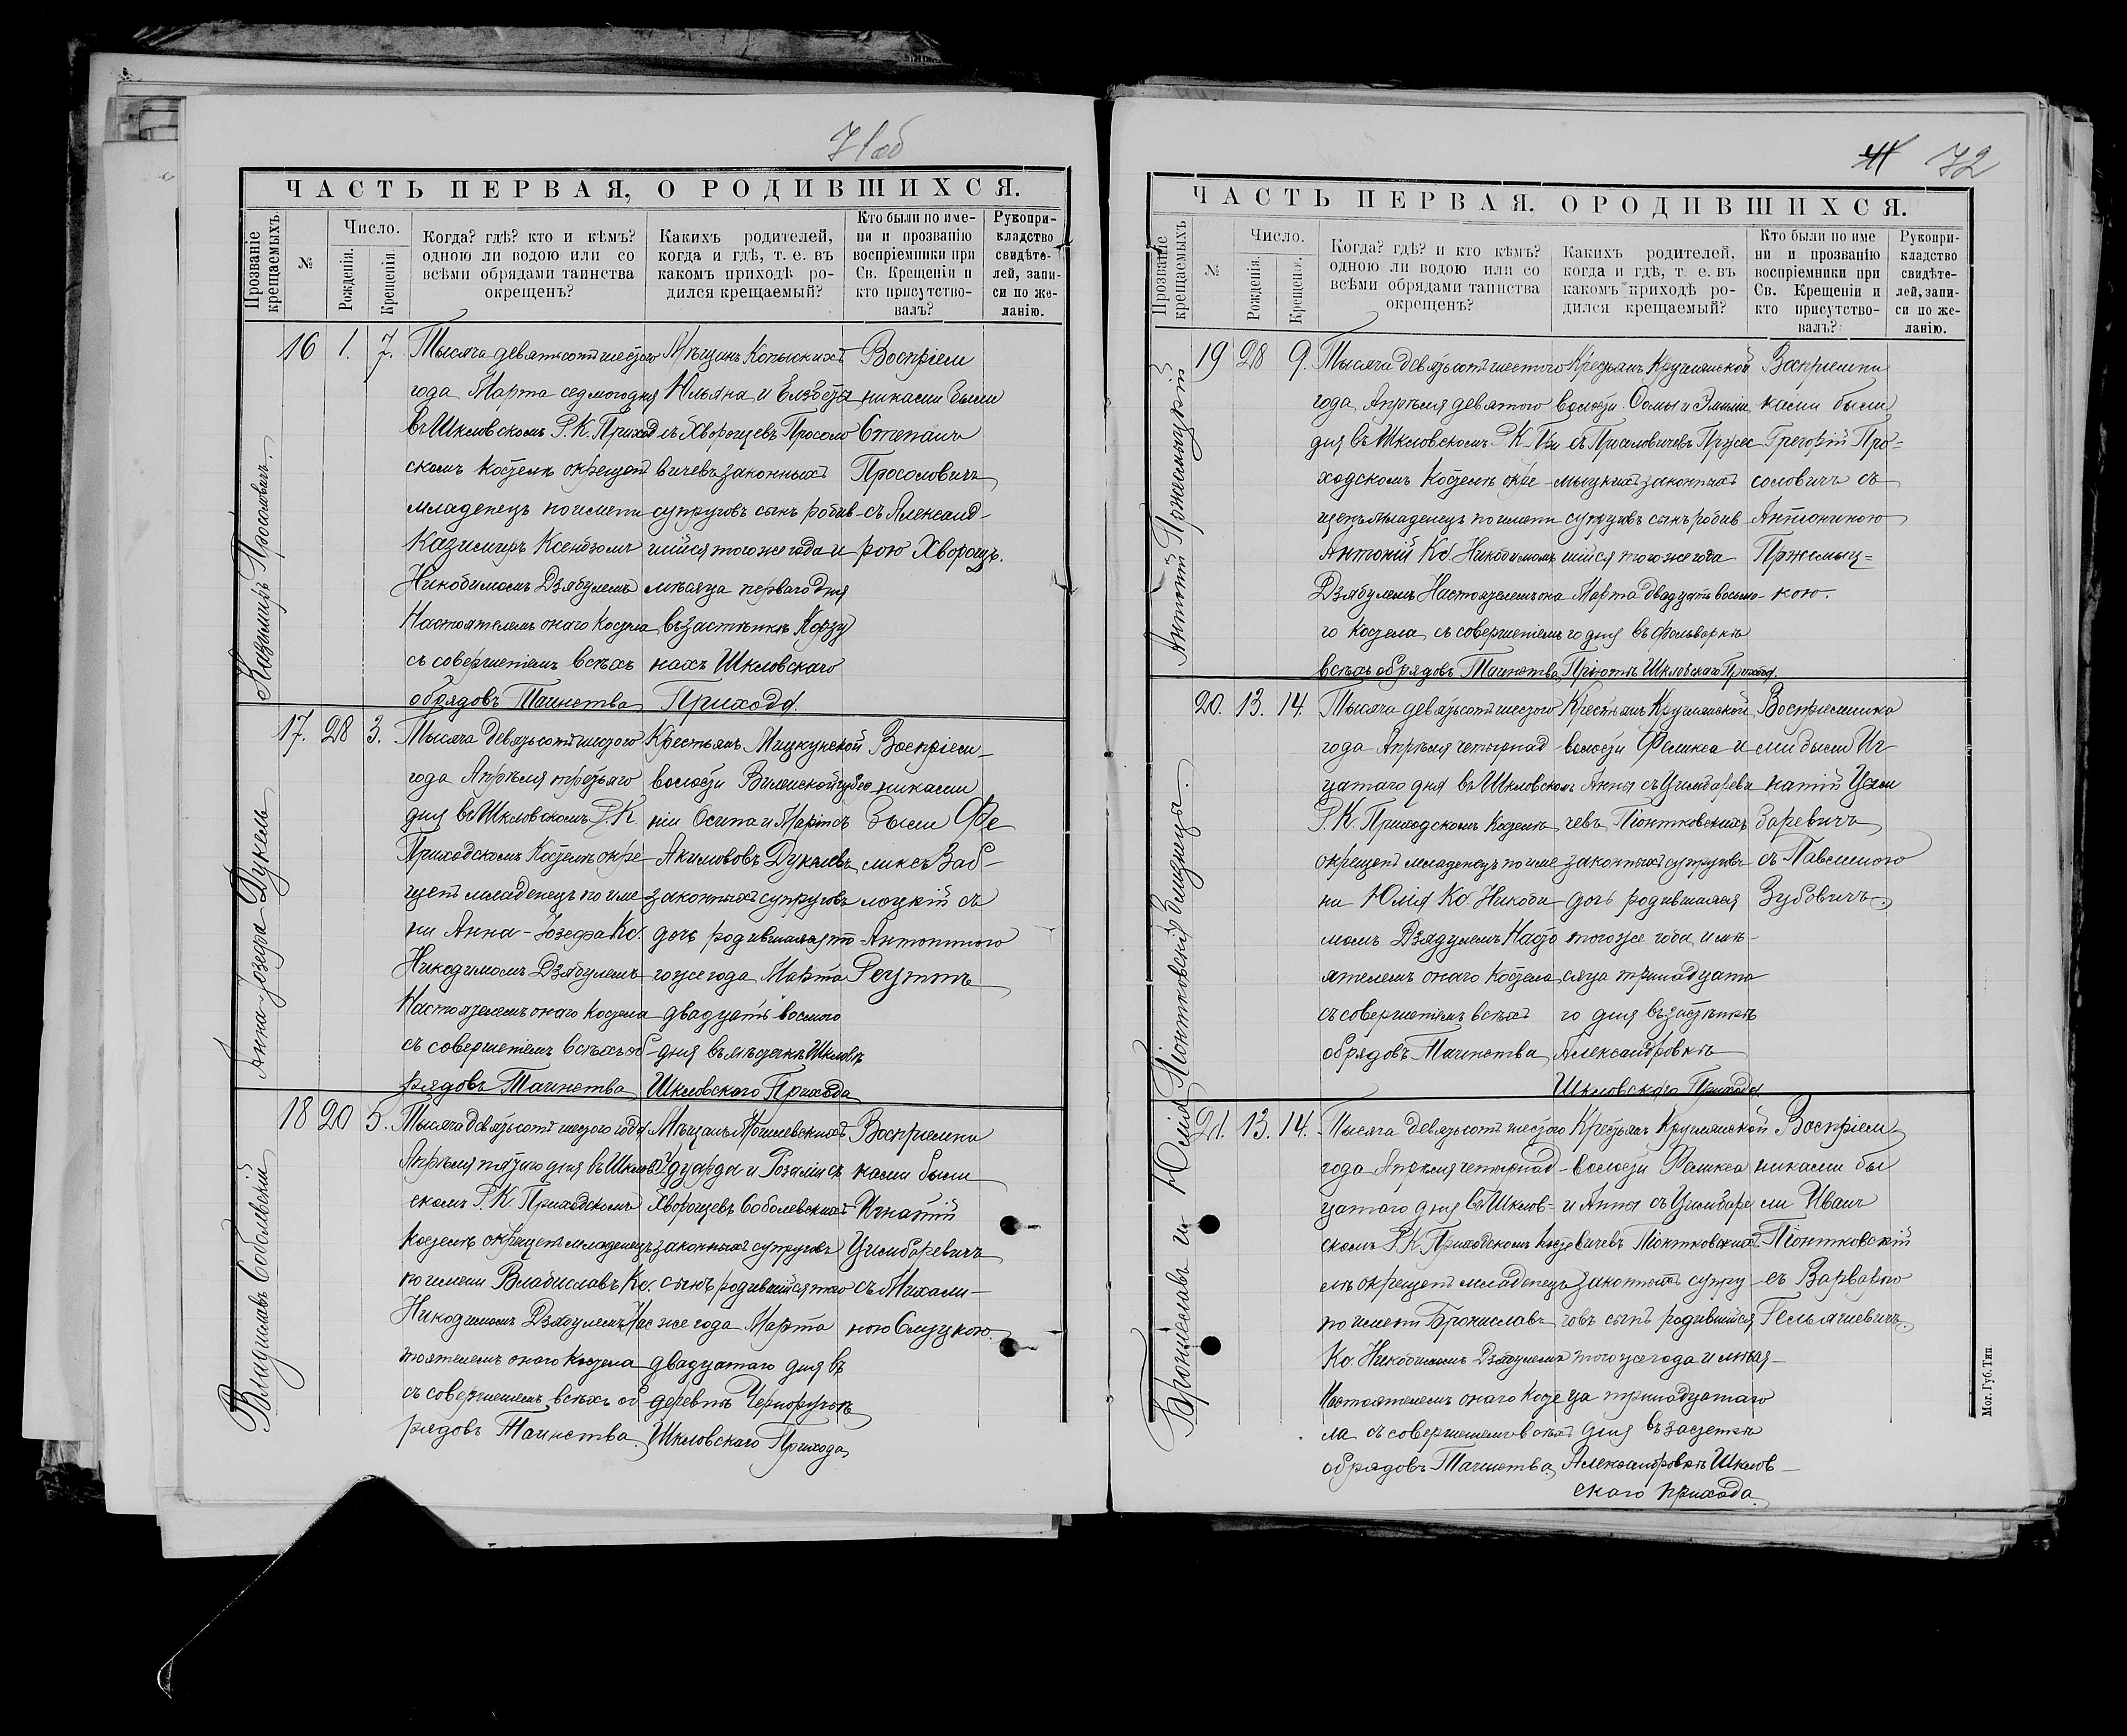 71об
ЧАСТЬ ПЕРВАЯ, О РОДИВШИХСЯ.
Прозваніе крещаемыхъ.
№
Число.
Рожденія.
Крещенія.
Когда? гдѣ? кто и кѣмъ?
одною ли водою или со
всѣми обрядами таинства
окрещенъ?
Какихъ родителей,
когда и гдѣ, т. е. въ
какомъ приходѣ ро-
дился крещаемый?
Кто были по име-
ни и прозванію
воспріемники при
Св. Крещеніи и
кто присутство-
валъ?
Рукопри-
кладство
свидѣте-
лей, запи-
си по же-
ланію.
Казимиръ Просоловичъ.
16
1.
7.
Тысяча девятьсотъ шестого
года Марта седмого дня
въ Шкловскомъ Р. К. Приход
скомъ костелѣ окрещенъ
младенецъ по имени
Казимиръ Ксендзомъ
Никодимомъ Дзябулемъ
Настоятелемъ онаго костела
съ совершеніемъ всѣхъ
обрядовъ Таинства
Мѣщанъ Копыскихъ
Юльяна и Елзбеты
съ Хворощевъ Просоло
вичевъ законныхъ
супруговъ сынъ родив-
шійся того же года и
мѣсяца перваго дня
въ застѣнкѣ Корзу
нахъ Шкловскаго
Прихода.
Воспріем
никами были
Степанъ
Просоловичъ
съ Александ-
рою Хворощъ.
Анна-Іозефа Дукель
17.
28
3.
Тысяча девятьсотъ шестого
года Апрѣля третьяго
дня въ Шкловскомъ Р. К
Приходскомъ Костелѣ окре
щенъ младенецъ по име
ни Анна-Іозефа Кс.
Никодимомъ Дзябулемъ
Настоятелемъ онаго костела
съ совершеніемъ всѣхъ об-
рядовъ Таинства
Крестьянъ Мицкунской
волости Виленской губер
ніи Осипа и Маріи съ
Акимовъ Дукелевъ
законныхъ супруговъ
дочь родившаяся то
го же года Марта
двадцать восмого
дня въ мѣстечкѣ Шкловѣ
Шкловскаго Прихода
Воспріем-
никами
были Фе
ликсъ Заб-
лоцкій съ
Антониною
Реуттъ
Владиславъ Собольвскій
18
20
5.
Тысяча девятьсотъ шестого года
Апрѣля пятаго дня въ Шклов
скомъ Р. К. Приходскомъ
костелѣ окрещенъ младенецъ
по имени Владиславъ Кс.
Никодимомъ Дзябулемъ Нас
тоятелемъ онаго костела
съ совершеніемъ всѣхъ об
рядовъ Таинства.
Мѣщанъ Могилевскихъ
Эдуарда и Розаліи съ
Хворощевъ Соболевскихъ
законныхъ супруговъ
сынъ родившійся того
же года Марта
двадцатаго дня въ
деревнѣ Чернорученѣ
Шкловскаго Прихода
Воспріемни
ками были
Игнатій
Цимбаревичъ
съ Михали-
ною Слуцкою.
72
ЧАСТЬ ПЕРВАЯ. О РОДИВШИХСЯ.
Прозваніе крещаемыхъ
№
Число.
Рожденія.
Крещенія.
Когда? гдѣ? и кто кѣмъ?
одною ли водою или со
всѣми обрядами таинства
окрещенъ?
Какихъ родителей,
когда и гдѣ, т. е. въ
какомъ приходѣ ро-
дился крещаемый?
Кто были по име
ни и прозванію
воспріемники при
Св. Крещеніи и
кто присутство-
валъ?
Рукопри-
кладство
свидѣте-
лей, запи-
си по же-
ланію.
Антоній Пржесмыцкій
19
28
9.
Тысяча девятьсотъ шестого
года Апрѣля девятого
дня въ Шкловскомъ Р. К. При
ходскомъ костелѣ окре-
щенъ младенецъ по имени
Антоній Кс. Никодимомъ
Дзябулемъ Настоятелемъ она
го костела съ совершеніемъ
всѣхъ обрядовъ Таинства
Крестьянъ Круглянской
волости Ѳомы и Эмиліи
съ Просоловичевъ Пржес
мыцкихъ законныхъ
супруговъ сынъ родив
шійся того же года
Марта двадцать восьмо-
го дня въ фольваркѣ
Пріютѣ Шкловскаго Прихода.
Воспріемни
ками были
Грегорій Про-
соловичъ съ
Антониною
Пржемыц-
кою.
20.
13.
14.
Тысяча девятьсотъ шестого
года Апрѣля четырнад
цатаго дня въ Шкловскомъ
Р. К. Приходскомъ костелѣ
окрещенъ младенецъ по име
ни Юлія Кс. Никоди
момъ Дзядулемъ Насто
ятелемъ онаго костела
съ совершеніемъ всѣхъ
обрядовъ Таинства
Крестьянъ Круглянской
волости Феликса и
Анны съ Цимбареви
чевъ Піонтковскихъ
законныхъ супруговъ
дочь родившаяся
того же года и мѣ-
сяца тринадцата
го дня въ застѣнкѣ
Александровкѣ
Шкловскаго Прихода.
Воспріемника
ми были Иг
натій Цим
баревичъ
съ Павелиною
Зубовичъ.
Брониславъ и Юлія Піонтковскій близнецы.
21.
13.
14.
Тысяча девятьсотъ шестого
года Апрѣля четырнад-
цатаго дня въ Шклов-
скомъ Р. К. Приходскомъ косте
лѣ окрещенъ младенецъ
по имени Брониславъ
Кс. Никодимомъ Дзябулемъ
Настоятелемъ онаго косте
ла съ совершеніемъ всѣхъ
обрядовъ Таинства.
Крестьянъ Круглянской
волости Феликса
и Анны съ Цимбаре
вичевъ Піонтковскихъ
законныхъ супру
говъ сынъ родившійся
того же года и мѣся-
ца тринадцатаго
дня въ застенкѣ
Александровкѣ Шклов-
скаго прихода.
Воспріем
никами бы
ли Иванъ
Піонтковскій
съ Варварою
Гельяшевичъ.
Мог. Губ. Тип.